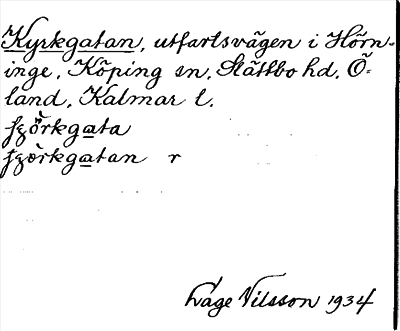 Kyrkgatan, utfartsvägen i Hörn-
inge, Köping sn, Slättbo hd, Ö-
land, Kalmar l.
ʃʒörkgata
ʃʒörkgatan r
Låge Nilsson 1934